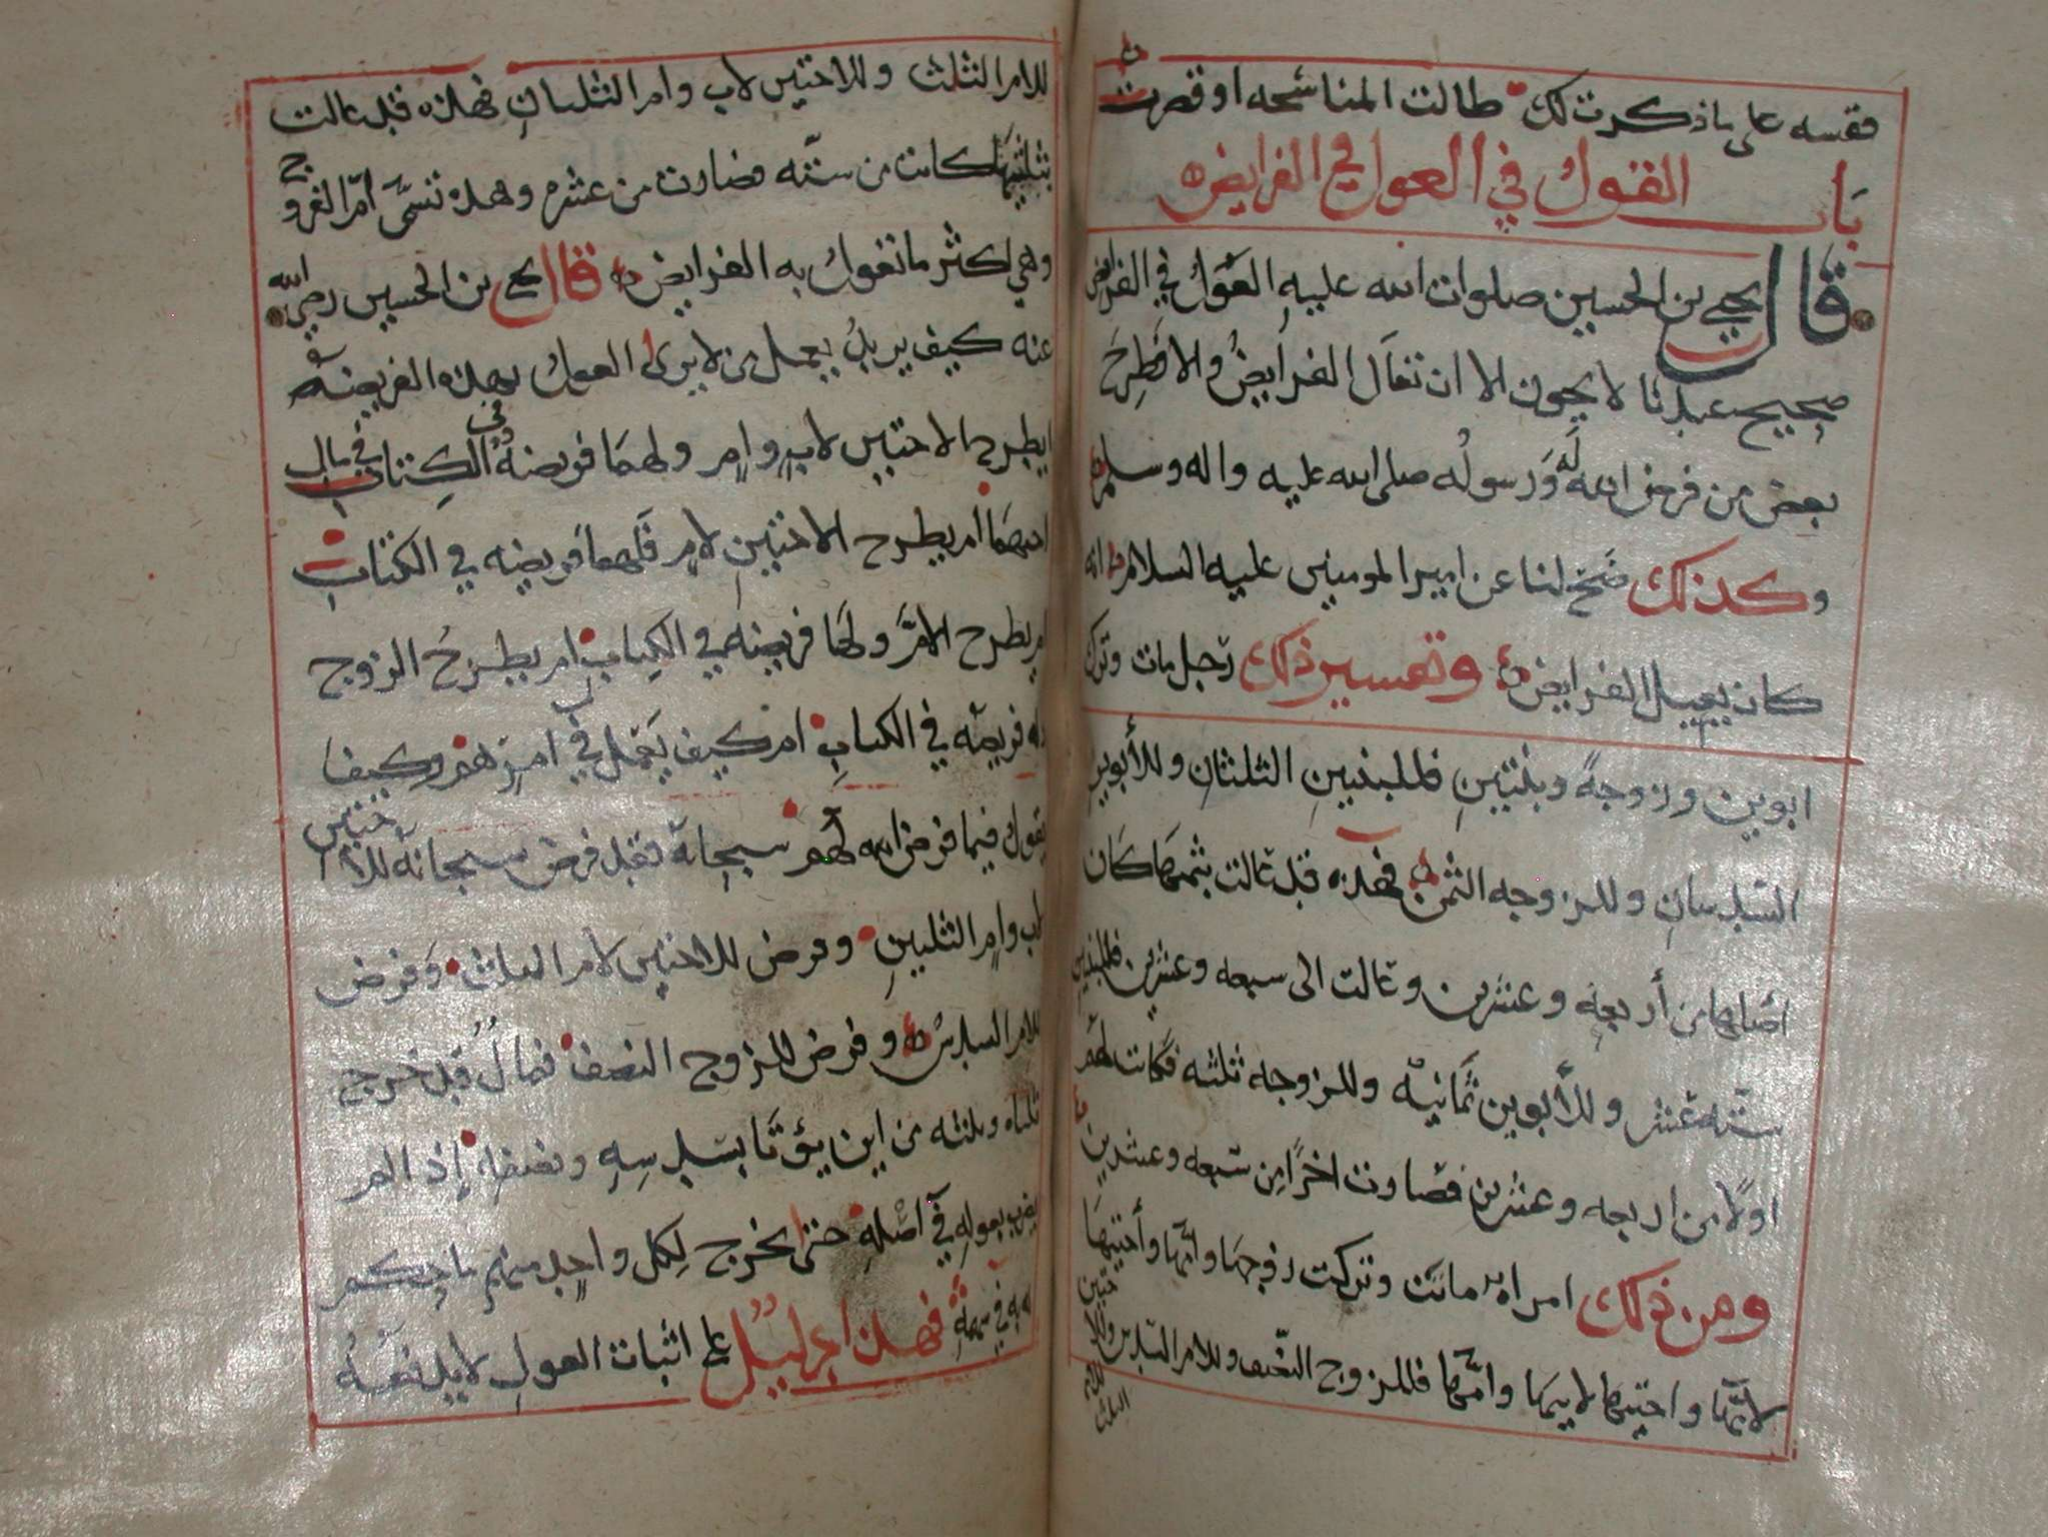 فقسه على ما ذكرت لك طالت المناسخه او قصرت
باب القول في العول في الفرايض
قال يحيى بن الحسين صلوات الله عليه العول في الفرايض
صحيح عندنا لا يجوز الا ان تعال الفرايض والا طرح
بعض من فرض الله له ورسوله صلى الله عليه واله وسلم
وكذلك صح لنا عن امير المومنين عليه السلام انه
كان يعيل الفرايض وتفسير ذلك رجل مات وترك
ابوين وزوجة وبنتين فللبنتين الثلثان وللأبوين
السدسان وللزوجه الثمن فهذه قد عالت بثمنها كان
أصلها من أربعه وعشرين وعالت الى سبعه وعشرين فللبنتين
ستة عشر وللأبوين ثمانية وللزوجه ثلثه فكانت لهم
اولا من اربعه وعشرين فصارت اخرا من سبعه وعشرين
ومن ذلك امراه ماتت وتركت زوجها وامها وأختيها
لامها واختيها لابيها وامها فللزوج النصف وللام السدس وللا
ختين
للام
الثلث
للام الثلث وللاختين لاب وام الثلثان فهذه قد عالت
بثلثيها كانت من سته فصارت من عشره وهذه تسمى أم الفرو
خ
وهي اكثر ما تعول به الفرايض قال يحيى بن الحسين رضي الله
عنه كيف يريد يعمل من لا يرى العول بهذه الفريضه
ايطرح الاختين لاب وام ولهما فريضة في الكتاب في مال
اختهما أم يطرح الاختين لام فلهما فريضه في الكتاب
ام يطرح الام ولها فريضه في الكتاب ام يطرح الزوج
وله فريضه في الكتاب ام كيف يعمل في امرهم وكيف
يقول فيما فرض الله لهم سبحانه فقد فرض سبحانه للا
ختين
لاب وام الثلثين وفرض للاختين لام الثلث وفرض
للام السدس وفرض للزوج النصف فمال قد خرج
ثلثاه وثلثه من اين يؤتا بسدسه ونصفه إذ لم
يضرب بعوله في أصله حتى يخرج لكل واحد منهم ما حكم
له به في سهمه فهذا دليل على اثبات العول لا يدفعه